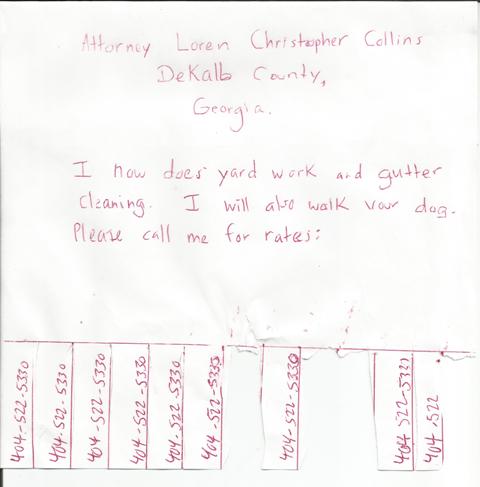 Attorney Loren Christopher Collins
DeKalb County,
Georgia.
I now does yard work and gutter
cleaning. I will also walk your dog.
Please call me for rates:
404-522-5330
404-522-5330
404-522-5330
404-522-5330
404-522-5330
404-522-5335
404-522-5330
404 522-5321
404-522